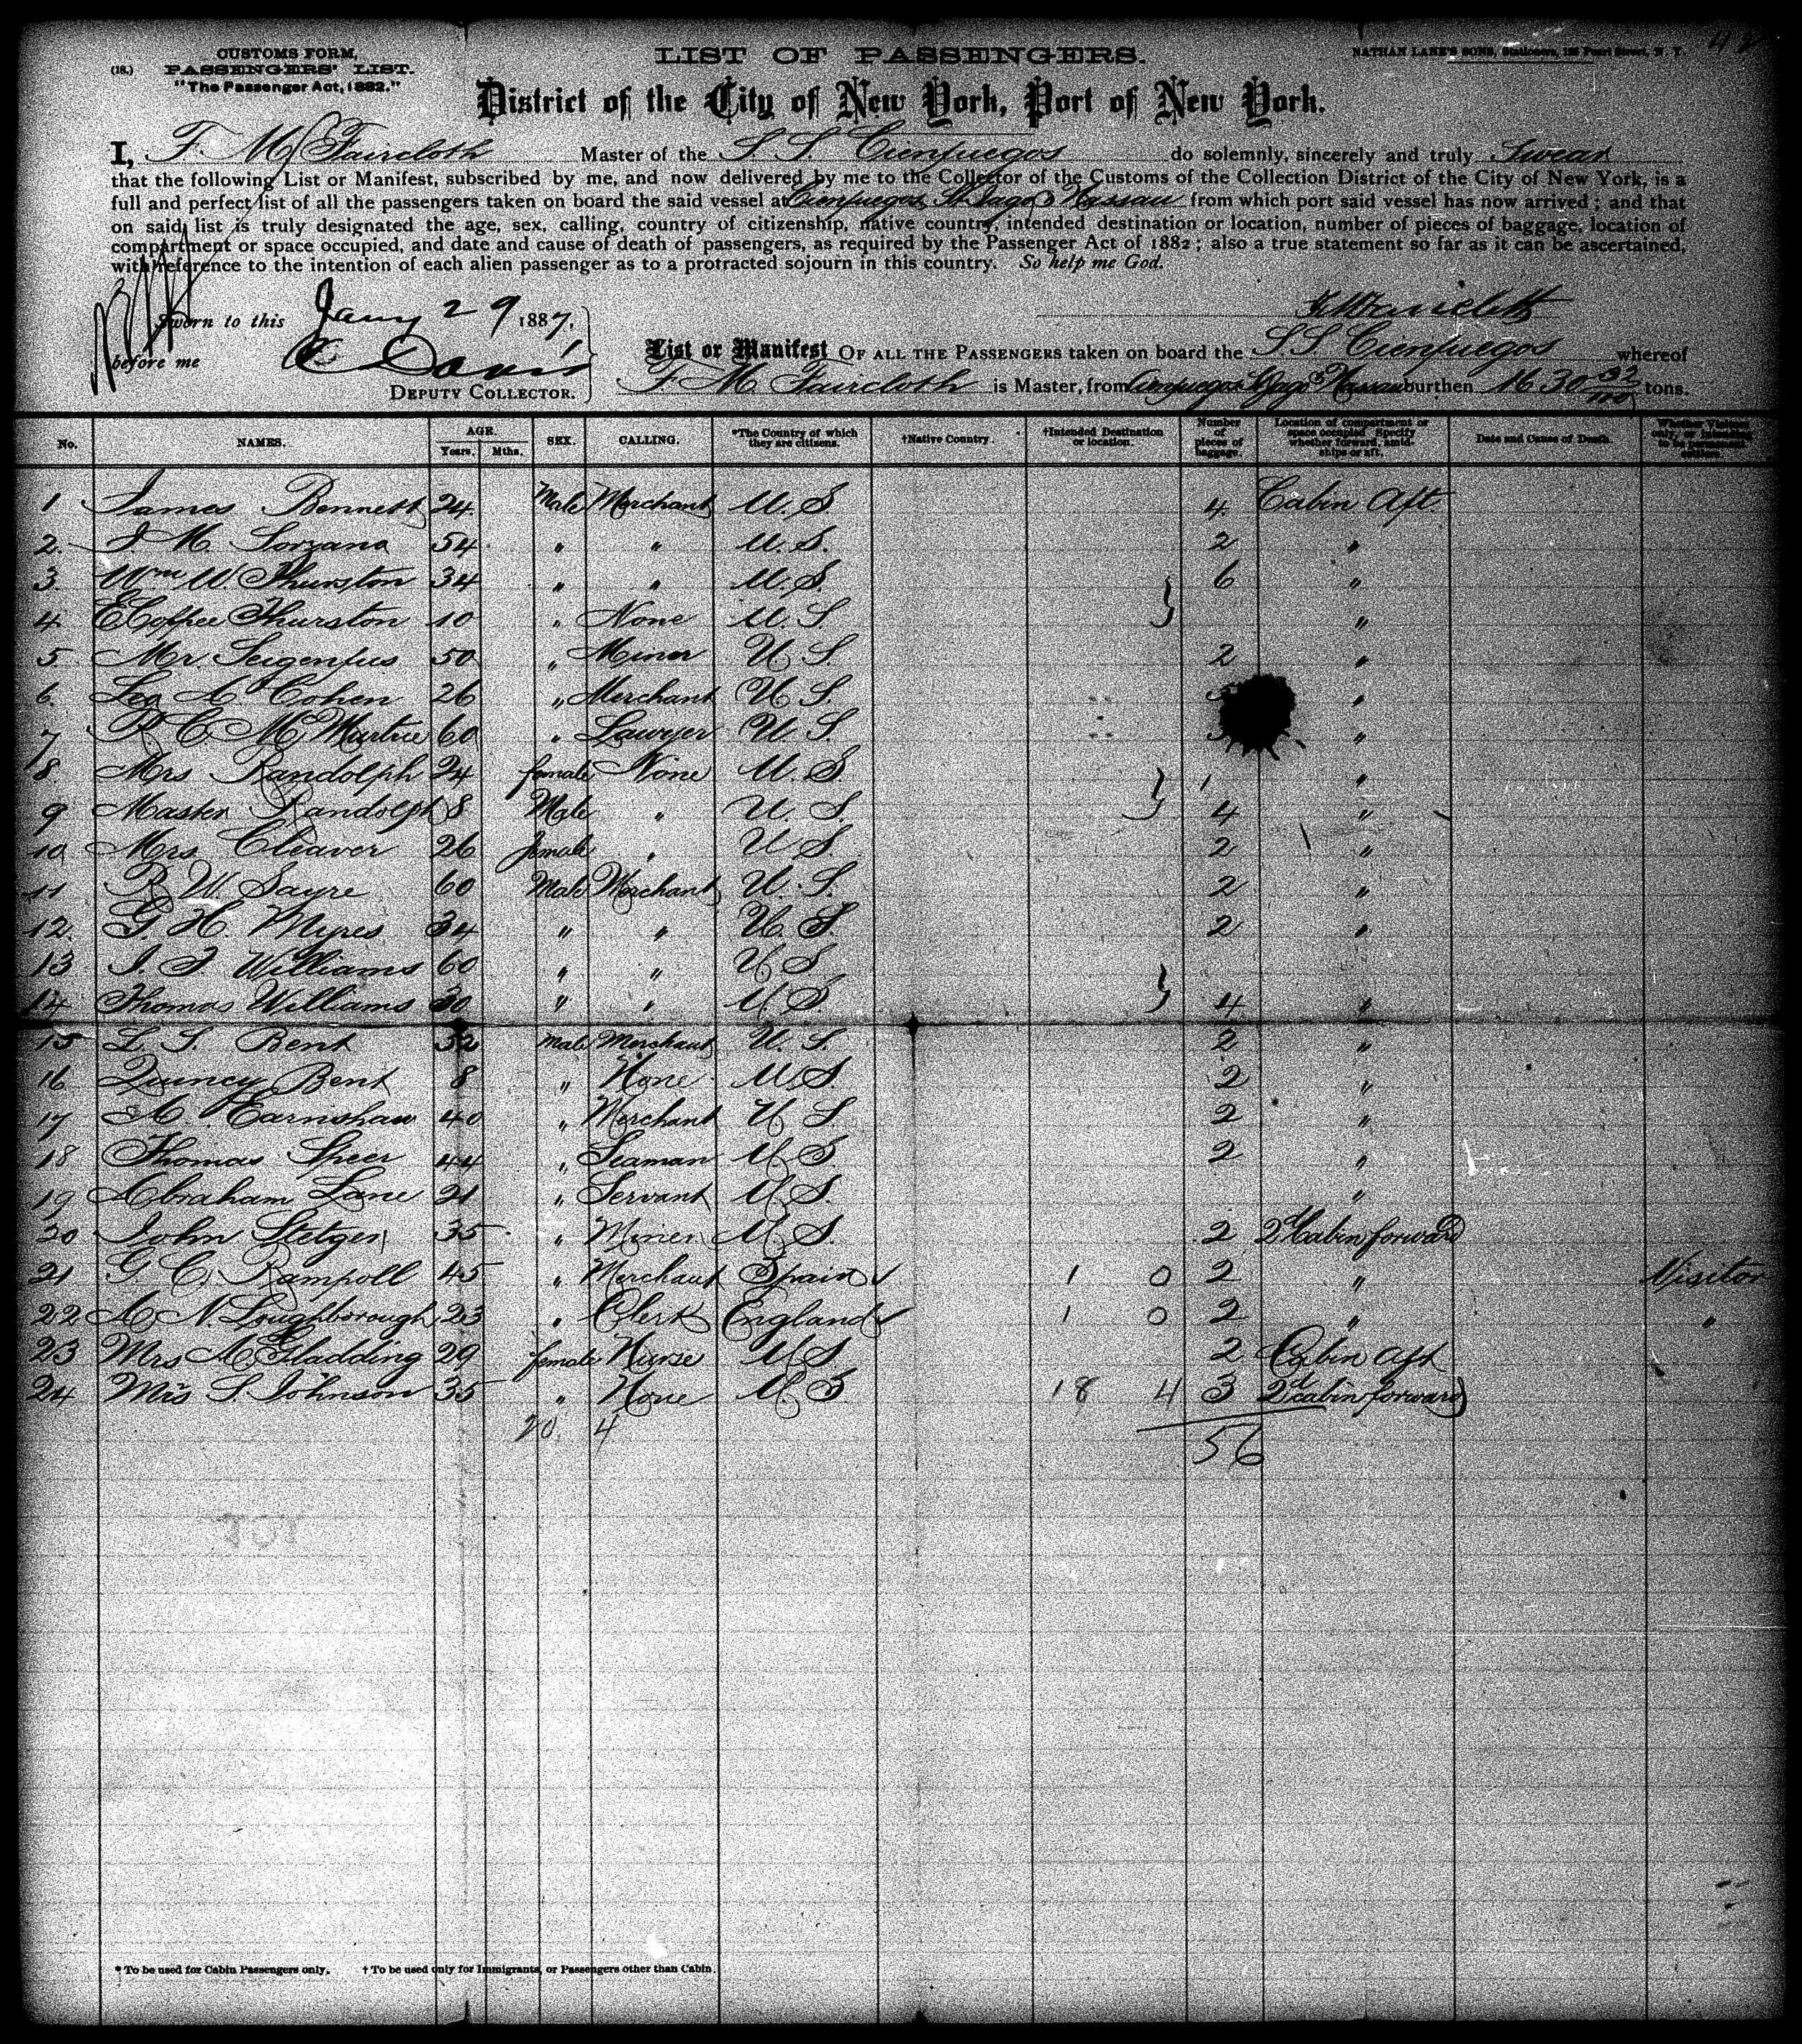 CUSTOMS FORM,
(18.) PASSENGERS' LIST.
"The Passenger Act, 1882."
LIST OF PASSENGERS.
NATHAN LANE'S SONS, Stationers, Pearl Street, N. Y.
District of the City of New York, Port of New York.
I, F. M. Faircloth Master of the S. S. Cienfuegos do solemnly, sincerely and truly Swear
that the following List or Manifest, subscribed by me, and now delivered by me to the Collector of the Customs of the Collection District of the City of New York, is a
full and perfect list of all the passengers taken on board the said vessel at Cienfuegos St Jago & Nassau from which port said vessel has now arrived; and that
on said list is truly designated the age, sex, calling, country of citizenship, native country, intended destination or location, number of pieces of baggage, location of
compartment or space occupied, and date and cause of death of passengers, as required by the Passenger Act of 1882; also a true statement so far as it can be ascertained,
with reference to the intention of each alien passenger as to a protracted sojourn in this country. So help me God.
Sworn to this Jany 29 1887,
before me Davis
DEPUTY COLLECTOR.
F M Faircloth
List or Manifest OF ALL THE PASSENGERS taken on board the S. S. Cienfuegos whereof
F. M. Faircloth is Master, from Cienfuegos St Jago & Nassau burthen 1630 32/100 tons.
No. NAMES. AGE. Years. Mths. SEX. CALLING. *The Country of which they are citizens. †Native Country. †Intended Destination or location. Number of pieces of baggage. Location of compartment or space occupied. Specify whether forward, amidships or aft. Date and Cause of Death.
1 James Bennett 24 Male Merchant U. S 4 Cabin Aft.
2. J. M. Sorzano 54 " " U. S. 2 "
3. Wm W. Thurston 34 " " U. S. 6 "
4. E Coffee Thurston 10 " None U. S "
5. Mr. Seigenfus 50 " Miner U. S. 2 "
6. Leo A. Cohen 26 " Merchant U S. "
7 60 " Lawyer U S. "
8. Mrs Randolph 24 female None U. S. "
9 Master Randolph 8 Male " U. S. 4 "
10 Mrs. Cleaver 26 female " U S. 2 "
11 R W Sayre 60 Male Merchant U. S. 2 "
12. G. H. Myres 34 " " U. S. 2 "
13 J. J Williams 60 " " U S.
14 Thomas Williams 30 " " U S. 4 "
15 L. S. Bent 52 Male Merchant U. S. 2 "
16 Quincy Bent 8 " None U. S. 2 "
17 A. Earnshaw 40 " Merchant U S 2 "
18 Thomas Speer 44 " Seaman U S. 2 "
19 Abraham Lane 21 " Servant U S. "
20 John Stetger 35 " Miner U S. 2 2d Cabin forward
21 G C. Rampoll 45 " Merchant Spain 1 0 2 " Visitor
22 A. N. Loughborough 23 " Clerk England 1 0 2 " "
23 Mrs A. Gladding 29 female Nurse U S 2 Cabin Aft
24 Mrs S. Johnson 35 " None U. S 18 4 3 2d cabin forward
20. 4 56
* To be used for Cabin Passengers only. † To be used only for Immigrants, or Passengers other than Cabin.